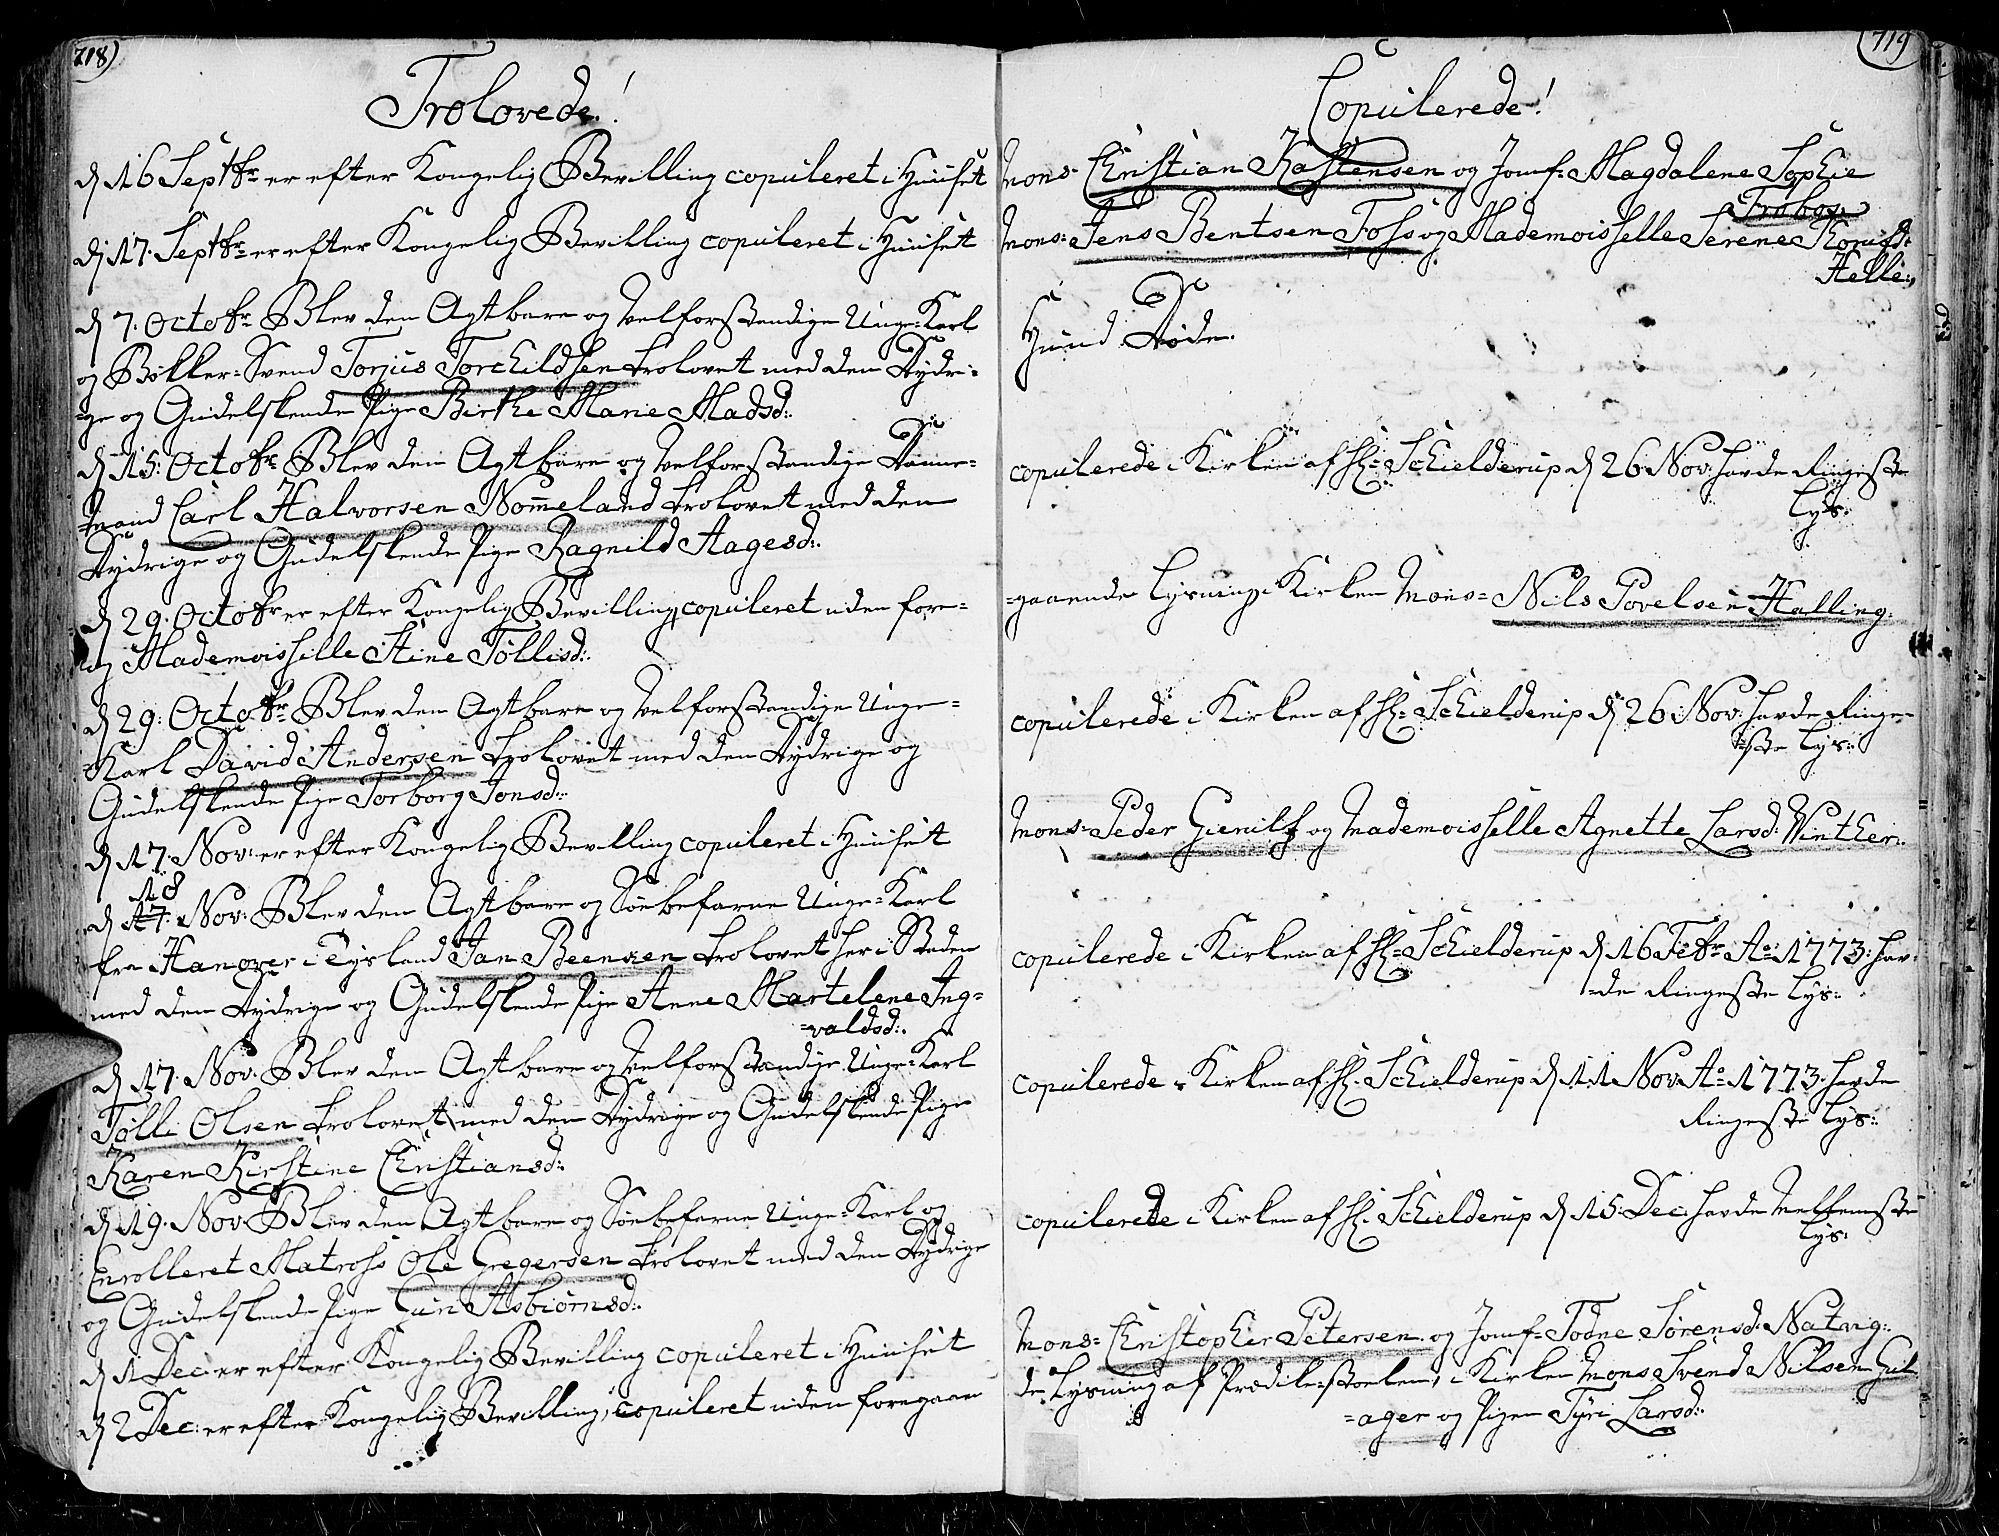 718)
Trolovede!
d 16 Septbr er efter Kongelig Bevilling copuleret i Huuset
d 17. Septbr er efter Kongelig Bevilling copuleret i Huuset
d 7. Octobr Blev den Agtbare og Velforstendige Unge-Karl
og Bøkker-Svend Torjus Torchildsen trolovet med den Dydri-
-ge og Gudelskende Pige Birthe Marie Madsd:
d 15: Octobr Blev den Agtbare og Velforstandige Danne-
-mand Carl Halvorsen Nom̄eland trolovet med den
Dydrige og Gudelskende Pige Ragnild Aagesd:
d 29. Octobr er efter Kongelig Bevilling, copuleret uden fore-
og Mademoisselle Stine Tøllisd:
d 29: Octobr Blev den Agtbare og Velforstendige Unge-
-Karl David Andersen trolovet med den Dydrige og
Gudelskende Pige Torborg Jonsd:
d 17. Nov: er efter Kongelig Bevilling copuleret i Huuset
18
d 17. Nov: Blev den Agtbare og Søebefarne Unge-Karl
fra Hanover i Tysland Jan Beenzen trolovet her i Steden
med den Dydrige og Gudelskende Pige Anne Martelene Ing-
-valdsd:
d 17. Nov. Blev den Agtbare og Velforstandige Unge-Karl
Tølli Olsen trolovet med den Dydrige og Gudelskende Pige
Karen Kirstine Christiansd:
d 19. Nov Blev den Agtbare og Søebefarne Unge-Karl og
Enrolleret Matross Ole Gregersen trolovet med den Dydrige
og Gudelskende Pige Guri Asbiørnsd:
d 1 Dec: er efter Kongelig Bevilling copuleret i Huuset
d 2 Dec: er efter Kongelig Bevilling, copuleret uden foregaan
719
Copulerede!
Mons- Christian Kastensen og Jomf- Magdalene Sophie
Mons: Jens Bentsen Foss og Mademoisselle Serene
Helle:
Hund Døde.
copulerede i Kirken af Hr: Schielderup d 26 Nov: havde Ringeste
Lys:
-gaaende Lysning i Kirken Mons- Nils Povelsen Halling
copulerede i Kirken af Hr: Schielderup d 26 Nov: havde Ringe-
-ste Lys:
Mons- Peder Gienilf og Mademoisselle Agnette Larsd: Winther:
copulerede i Kirken af Hr: Schielderup d 16 Febr Ao: 1773: hav-
-de Ringeste Lys:
copulerede i Kirken af Hr: Schielderup d 11 Nov: Ao 1773: havde
Ringeste Lys:
copulerede i Kirken af Hr: Schielderup d 15: Dec: havde Mellemste
Lys:
Mons- Christopher Petersen og Jomf- Todne Sørensd: Natvig:
de Lysning af Prædike-Stoelen, i Kirken Mons Svend Nilsen Gul
-ager og Pigen Tyri Larsd: